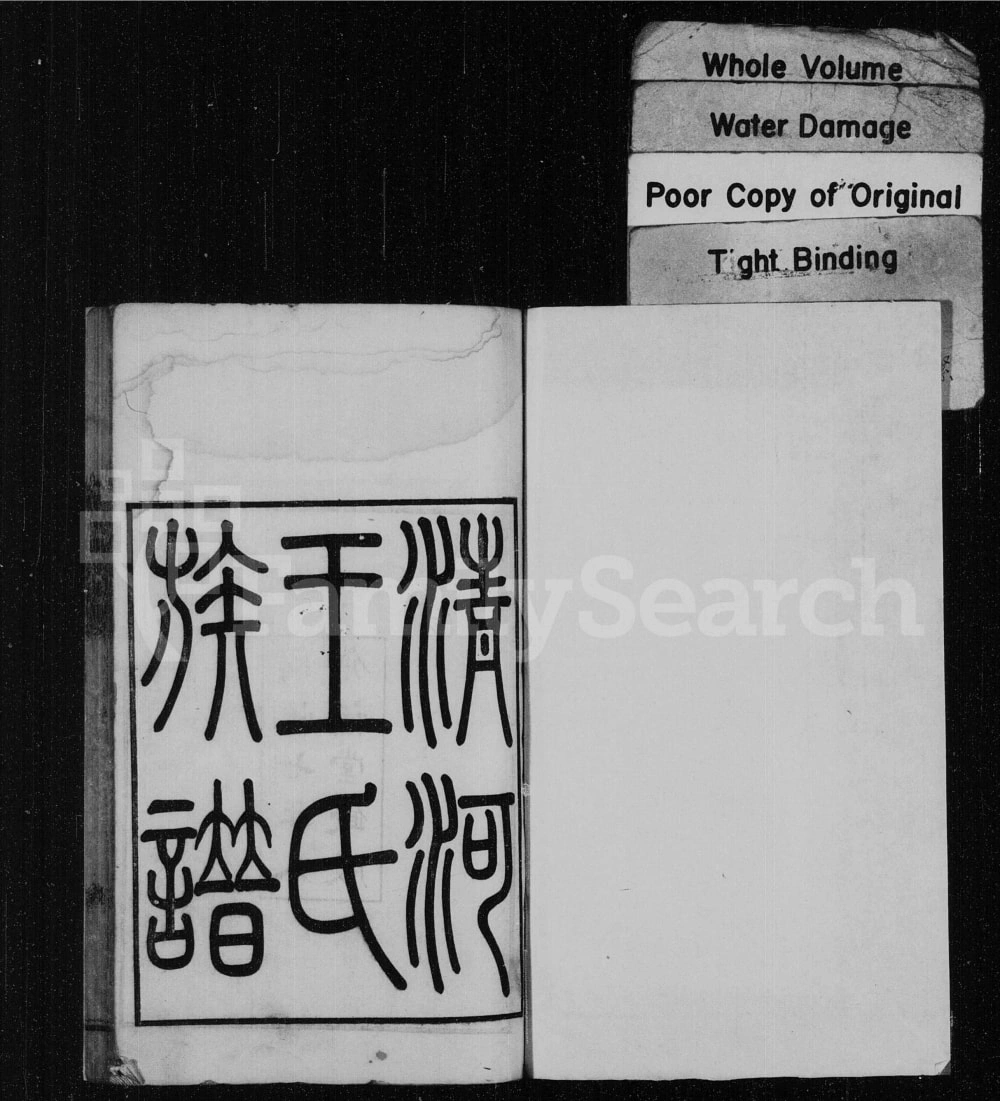 Whole Volume
Water Damage
Poor Copy of Original
Tight Binding
清河
王氏
族譜
FamilySearch